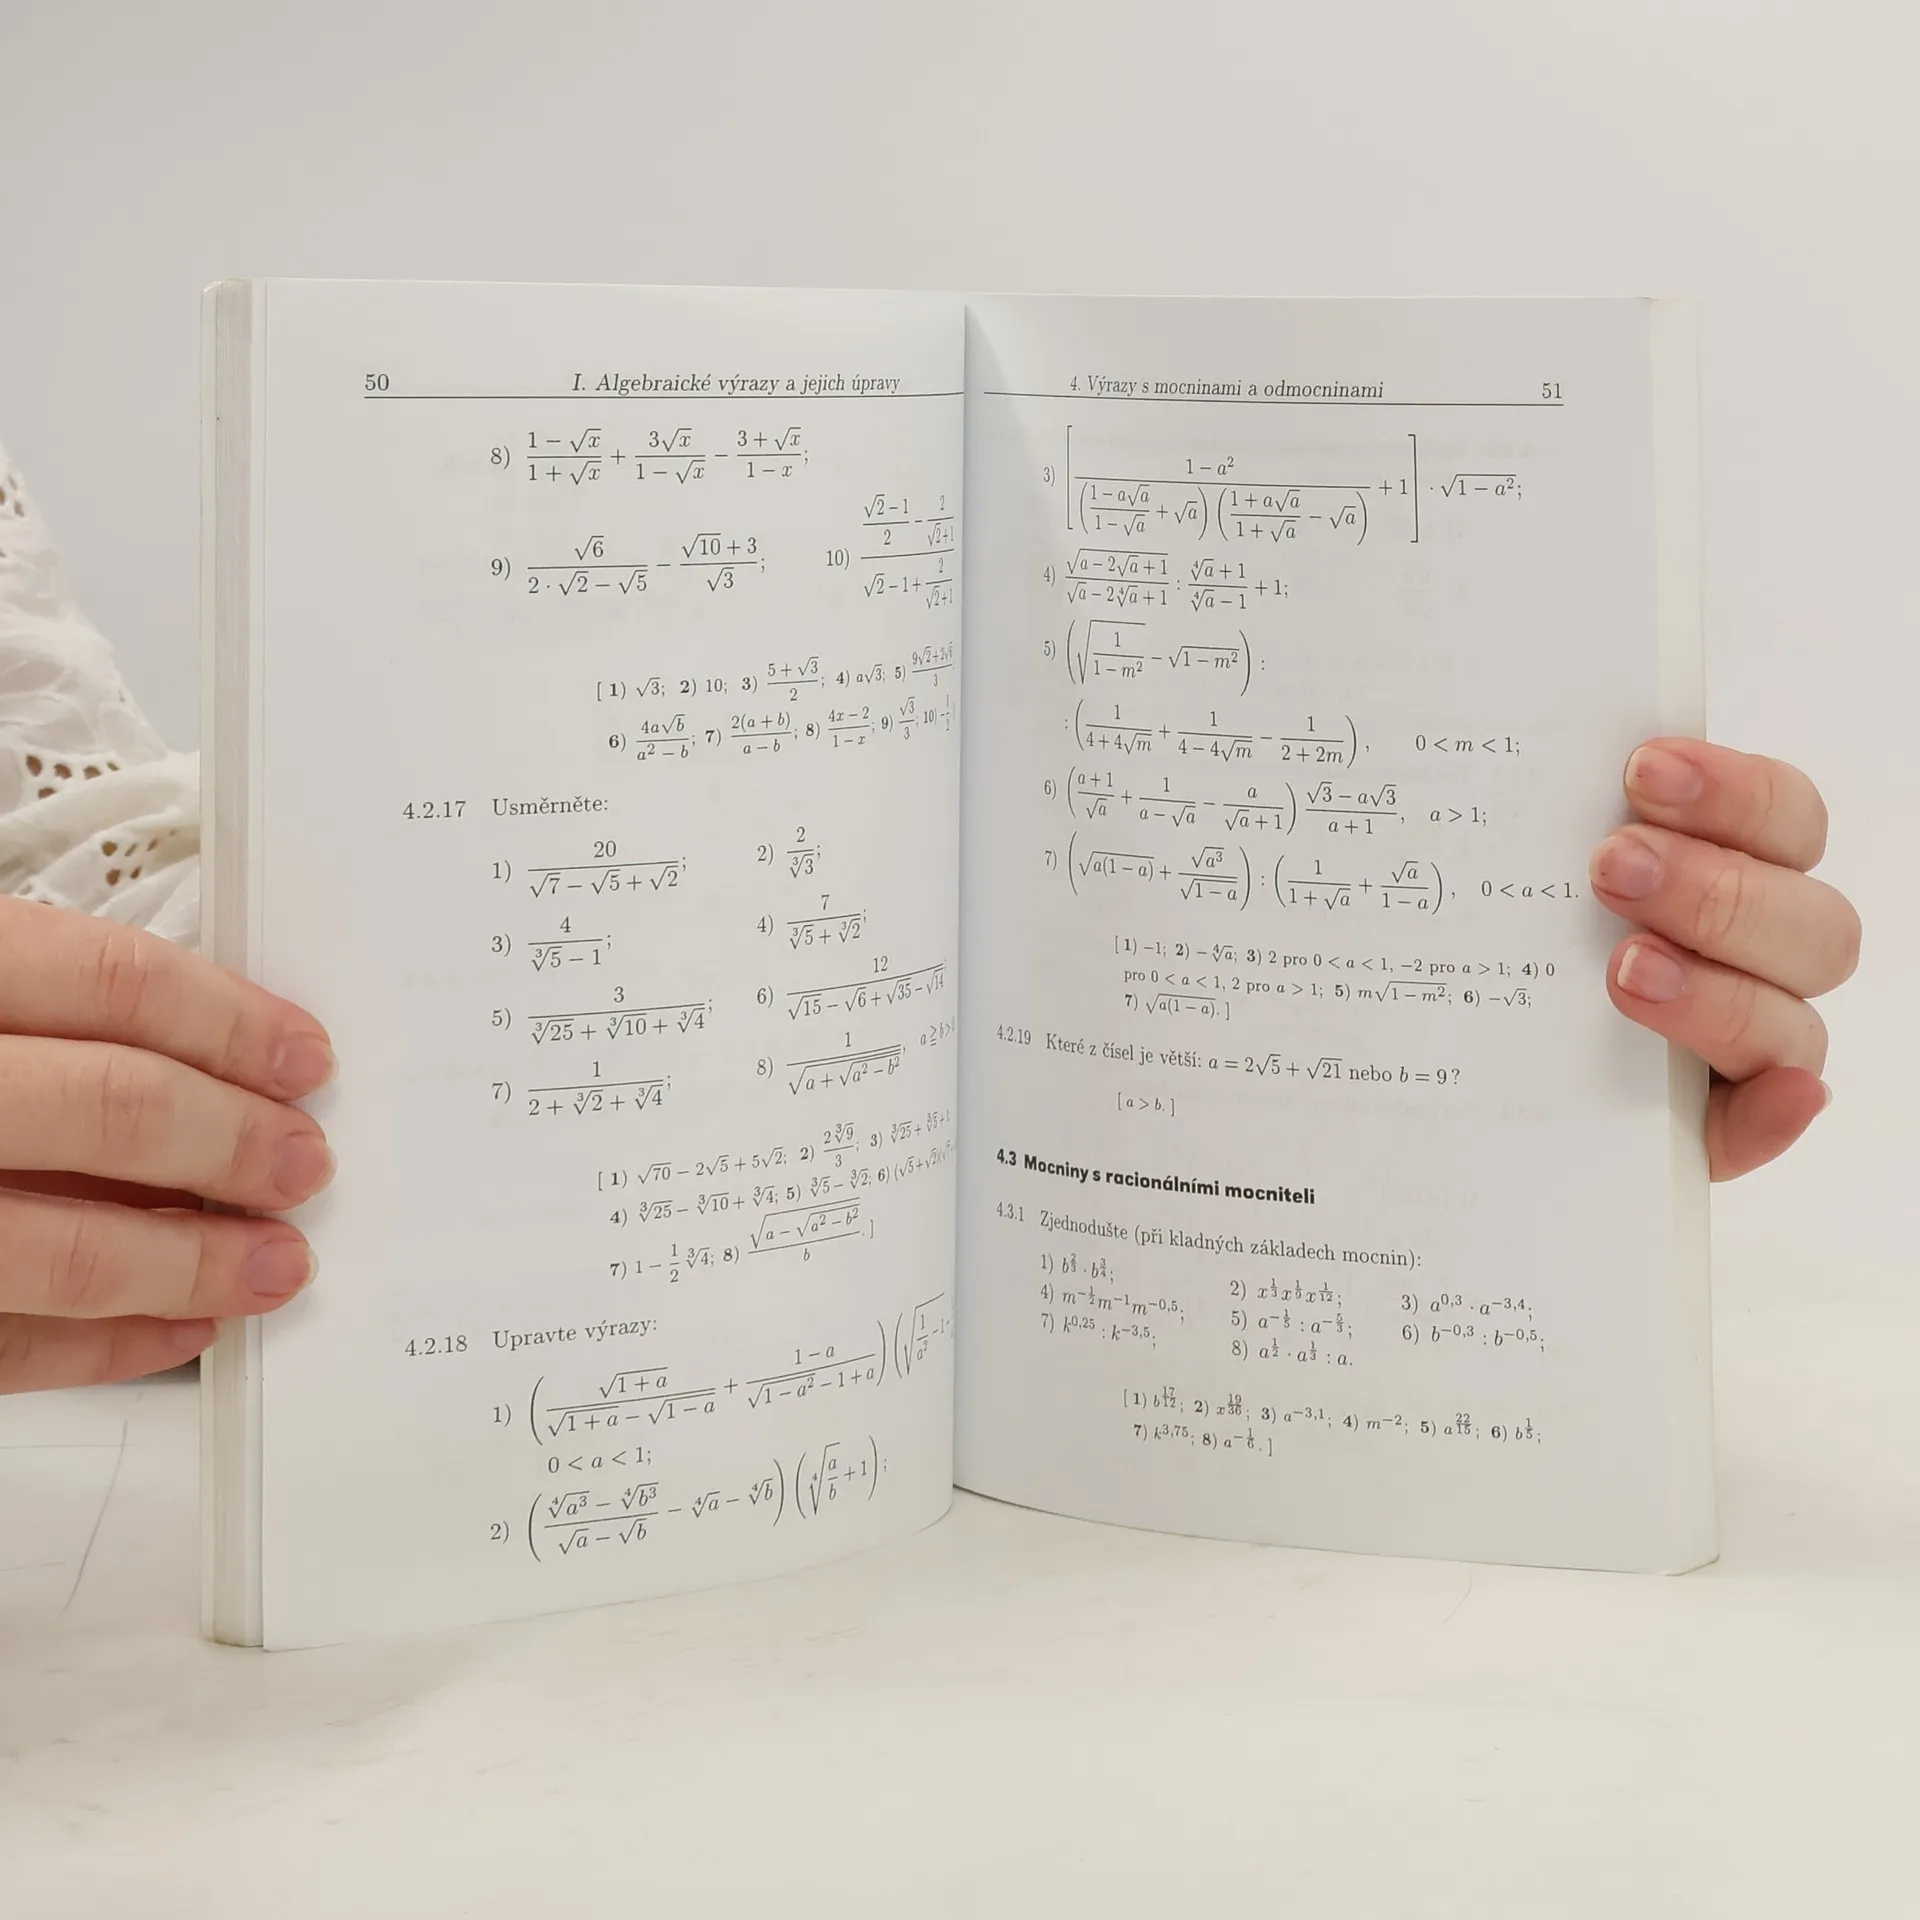 50 I. Algebraické výrazy a jejich úpravy
8) \frac{1-\sqrt{x}}{1+\sqrt{x}} + \frac{3\sqrt{x}}{1-\sqrt{x}} - \frac{3+\sqrt{x}}{1-x};
9) \frac{\sqrt{6}}{2\cdot\sqrt{2}-\sqrt{5}} - \frac{\sqrt{10}+3}{\sqrt{3}}; 10) \frac{\frac{\sqrt{2}-1}{2}-\frac{2}{\sqrt{2}+1}}{\sqrt{2}-1+\frac{2}{\sqrt{2}+1}}
[ 1) \sqrt{3}; 2) 10; 3) \frac{5+\sqrt{3}}{2}; 4) a\sqrt{3}; 5) \frac{9\sqrt{2}+2\sqrt{6}}{3};
6) \frac{4a\sqrt{b}}{a^2-b}; 7) \frac{2(a+b)}{a-b}; 8) \frac{4x-2}{1-x}; 9) \frac{\sqrt{3}}{3}; 10) -\frac{1}{2}
4.2.17 Usměrněte:
1) \frac{20}{\sqrt{7}-\sqrt{5}+\sqrt{2}}; 2) \frac{2}{\sqrt[3]{3}};
3) \frac{4}{\sqrt[3]{5}-1}; 4) \frac{7}{\sqrt[3]{5}+\sqrt[3]{2}};
5) \frac{3}{\sqrt[3]{25}+\sqrt[3]{10}+\sqrt[3]{4}}; 6) \frac{12}{\sqrt{15}-\sqrt{6}+\sqrt{35}-\sqrt{14}}
7) \frac{1}{2+\sqrt[3]{2}+\sqrt[3]{4}}; 8) \frac{1}{\sqrt{a+\sqrt{a^2-b^2}}}, a ≧ b >
[ 1) \sqrt{70}-2\sqrt{5}+5\sqrt{2}; 2) \frac{2\sqrt[3]{9}}{3}; 3) \sqrt[3]{25}+\sqrt[3]{5}+1
4) \sqrt[3]{25}-\sqrt[3]{10}+\sqrt[3]{4}; 5) \sqrt[3]{5}-\sqrt[3]{2}; 6) (\sqrt{5}+\sqrt{2})(
7) 1-\frac{1}{2}\sqrt[3]{4}; 8) \frac{\sqrt{a-\sqrt{a^2-b^2}}}{b}. ]
4.2.18 Upravte výrazy:
1) \left(\frac{\sqrt{1+a}}{\sqrt{1+a}-\sqrt{1-a}} + \frac{1-a}{\sqrt{1-a^2}-1+a}\right)\left(\sqrt{\frac{1}{a^2}-1}-
0 < a < 1;
2) \left(\frac{\sqrt[4]{a^3}-\sqrt[4]{b^3}}{\sqrt{a}-\sqrt{b}} - \sqrt[4]{a}-\sqrt[4]{b}\right)\left(\sqrt[4]{\frac{a}{b}}+1\right);
4. Výrazy s mocninami a odmocninami 51
3) \left[\frac{1-a^2}{\left(\frac{1-a\sqrt{a}}{1-\sqrt{a}}+\sqrt{a}\right)\left(\frac{1+a\sqrt{a}}{1+\sqrt{a}}-\sqrt{a}\right)}+1\right]\cdot\sqrt{1-a^2};
4) \frac{\sqrt{a-2\sqrt{a}+1}}{\sqrt{a}-2\sqrt[4]{a}+1} : \frac{\sqrt[4]{a}+1}{\sqrt[4]{a}-1}+1;
5) \left(\sqrt{\frac{1}{1-m^2}}-\sqrt{1-m^2}\right) :
: \left(\frac{1}{4+4\sqrt{m}}+\frac{1}{4-4\sqrt{m}}-\frac{1}{2+2m}\right), 0 < m < 1;
6) \left(\frac{a+1}{\sqrt{a}}+\frac{1}{a-\sqrt{a}}-\frac{a}{\sqrt{a}+1}\right)\frac{\sqrt{3}-a\sqrt{3}}{a+1}, a > 1;
7) \left(\sqrt{a(1-a)}+\frac{\sqrt{a^3}}{\sqrt{1-a}}\right) : \left(\frac{1}{1+\sqrt{a}}+\frac{\sqrt{a}}{1-a}\right), 0 < a < 1.
[ 1) -1; 2) -\sqrt[4]{a}; 3) 2 pro 0 < a < 1, -2 pro a > 1; 4) 0
pro 0 < a < 1, 2 pro a > 1; 5) m\sqrt{1-m^2}; 6) -\sqrt{3};
7) \sqrt{a(1-a)}. ]
4.2.19 Které z čísel je větší: a = 2\sqrt{5}+\sqrt{21} nebo b = 9 ?
[ a > b. ]
4.3 Mocniny s racionálními mocniteli
4.3.1 Zjednodušte (při kladných základech mocnin):
1) b^{\frac{2}{3}} \cdot b^{\frac{3}{4}}; 2) x^{\frac{1}{3}}x^{\frac{1}{9}}x^{\frac{1}{12}}; 3) a^{0,3} \cdot a^{-3,4};
4) m^{-\frac{1}{2}}m^{-1}m^{-0,5}; 5) a^{-\frac{1}{5}} : a^{-\frac{5}{3}}; 6) b^{-0,3} : b^{-0,5};
7) k^{0,25} : k^{-3,5}; 8) a^{\frac{1}{2}} \cdot a^{\frac{1}{3}} : a.
[ 1) b^{\frac{17}{12}}; 2) x^{\frac{19}{36}}; 3) a^{-3,1}; 4) m^{-2}; 5) a^{\frac{22}{15}}; 6) b^{\frac{1}{5}};
7) k^{3,75}; 8) a^{-\frac{1}{6}}. ]